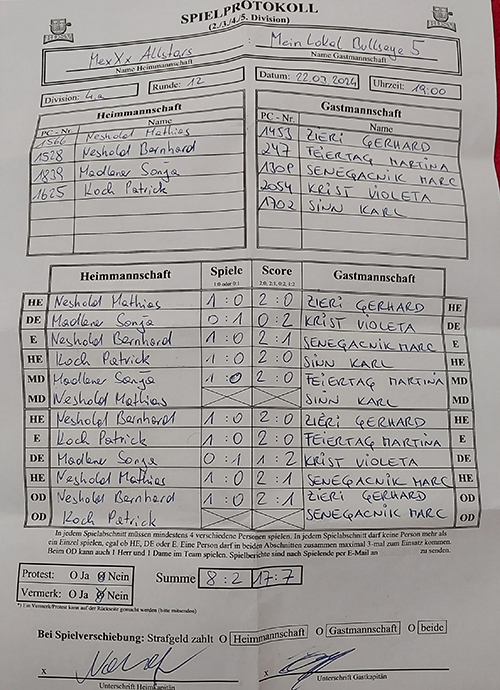 SPIELPROTOKOLL
(2./3./4./5. Division)
MexXx Allstars : Mein Lokal Bullseye 5
Name Heimmannschaft Name Gastmannschaft
Division: 4.a Runde: 12 Datum: 22.03.2024 Uhrzeit: 19:00
Heimmannschaft Gastmannschaft
PC - Nr. Name PC - Nr. Name
1566 Neshold Mathias 1453 ZIERI GERHARD
1528 Neshold Bernhard 247 FEIERTAG MARTINA
1839 Madlener Sonja SENEGACNIK MARC
1625 Koch Patrick 2054 KRIST VIOLETA
1702 SINN KARL
Heimmannschaft Spiele Score Gastmannschaft
1:0 oder 0:1 2:0, 2:1, 0:2, 1:2
HE Neshold Mathias 1 : 0 2 : 0 ZIERI GERHARD HE
DE Madlener Sonja 0 : 1 0 : 2 KRIST VIOLETA DE
E Neshold Bernhard 1 : 0 2 : 1 SENEGACNIK MARC E
HE Koch Patrick 1 : 0 2 : 0 SINN KARL HE
MD Madlener Sonja 1 : 0 2 : 0 FEIERTAG MARTINA MD
MD Neshold Mathias SINN KARL MD
HE Neshold Bernhard 1 : 0 2 : 0 ZIERI GERHARD HE
E Koch Patrick 1 : 0 2 : 0 FEIERTAG MARTINA E
DE Madlener Sonja 0 : 1 1 : 2 KRIST VIOLETA DE
HE Neshold Mathias 1 : 0 2 : 1 SENEGACNIK MARC HE
OD Neshold Bernhard 1 : 0 2 : 1 ZIERI GERHARD OD
OD Koch Patrick SENEGACNIK MARC OD
In jedem Spielabschnitt müssen mindestens 4 verschiedene Personen spielen. In jedem Spielabschnitt darf keine Person mehr als
ein Einzel spielen, egal ob HE, DE oder E. Eine Person darf in beiden Abschnitten zusammen maximal 3-mal zum Einsatz kommen.
Beim OD kann auch 1 Herr und 1 Dame im Team spielen. Spielberichte sind nach Spielende per E-Mail an zu senden.
Protest: O Ja O Nein Summe 8 : 2 17 : 7
Vermerk: O Ja O Nein
*) Ein Vermerk/Protest kann auf der Rückseite gemacht werden (bitte ankreuzen)
Bei Spielverschiebung: Strafgeld zahlt O Heimmannschaft O Gastmannschaft O beide
x x
Unterschrift Heimkapitän Unterschrift Gastkapitän